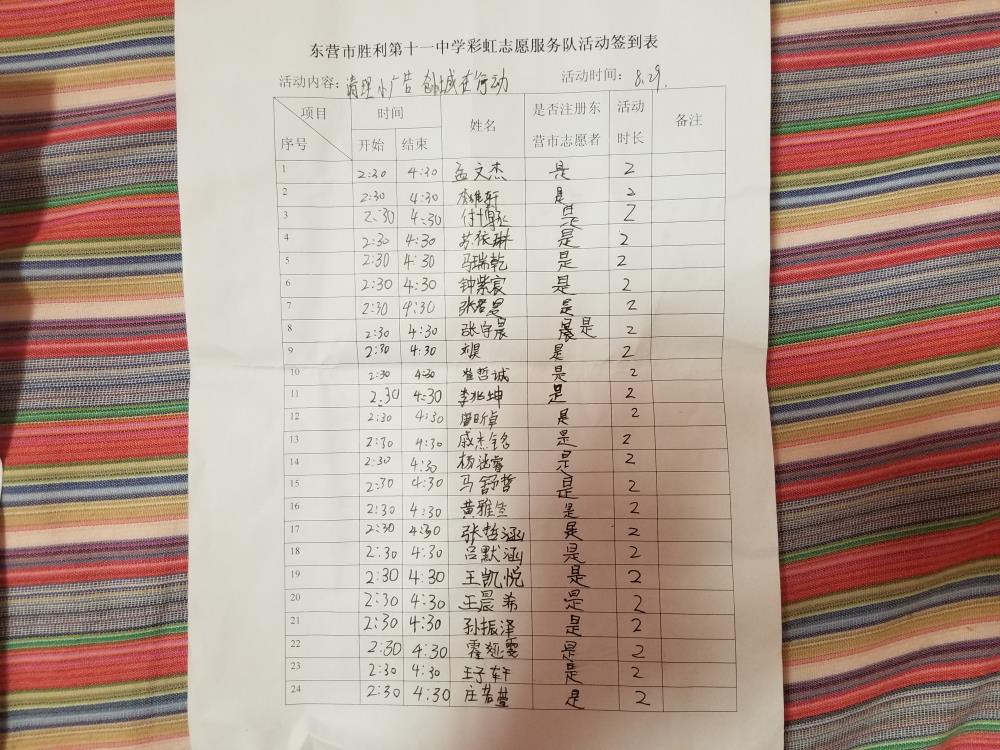 东营市胜利第十一中学彩虹志愿服务队活动签到表
活动内容：清理小广告 创城在行动 活动时间： 8.29.
项目 时间 姓名 是否注册东 活动 备注
序号 开始 结束 营市志愿者 时长
1 2:30 4:30 孟文杰 是 2
2 2:30 4:30 是 2
3 2:30 4:30 是 2
4 2:30 4:30 苏依琳 是 2
5 2:30 4:30 马瑞乾 是 2
6 2:30 4:30 钟紫宸 是 2
7 2:30 4:30 是 2
8 2:30 4:30 张宇晨 是 2
9 2:30 4:30 刘昊 是 2
10 2:30 4:30 崔哲诚 是 2
11 2:30 4:30 李兆坤 是 2
12 2:30 4:30 是 2
13 2:30 4:30 戚杰铭 是 2
14 2:30 4:30 是 2
15 2:30 4:30 马舒哲 是 2
16 2:30 4:30 黄雅生 是 2
17 2:30 4:30 张哲涵 是 2
18 2:30 4:30 吕默涵 是 2
19 2:30 4:30 王凯悦 是 2
20 2:30 4:30 王晨希 是 2
21 2:30 4:30 孙振泽 是 2
22 2:30 4:30 是 2
23 2:30 4:30 王子轩 是 2
24 2:30 4:30 庄若萱 是 2